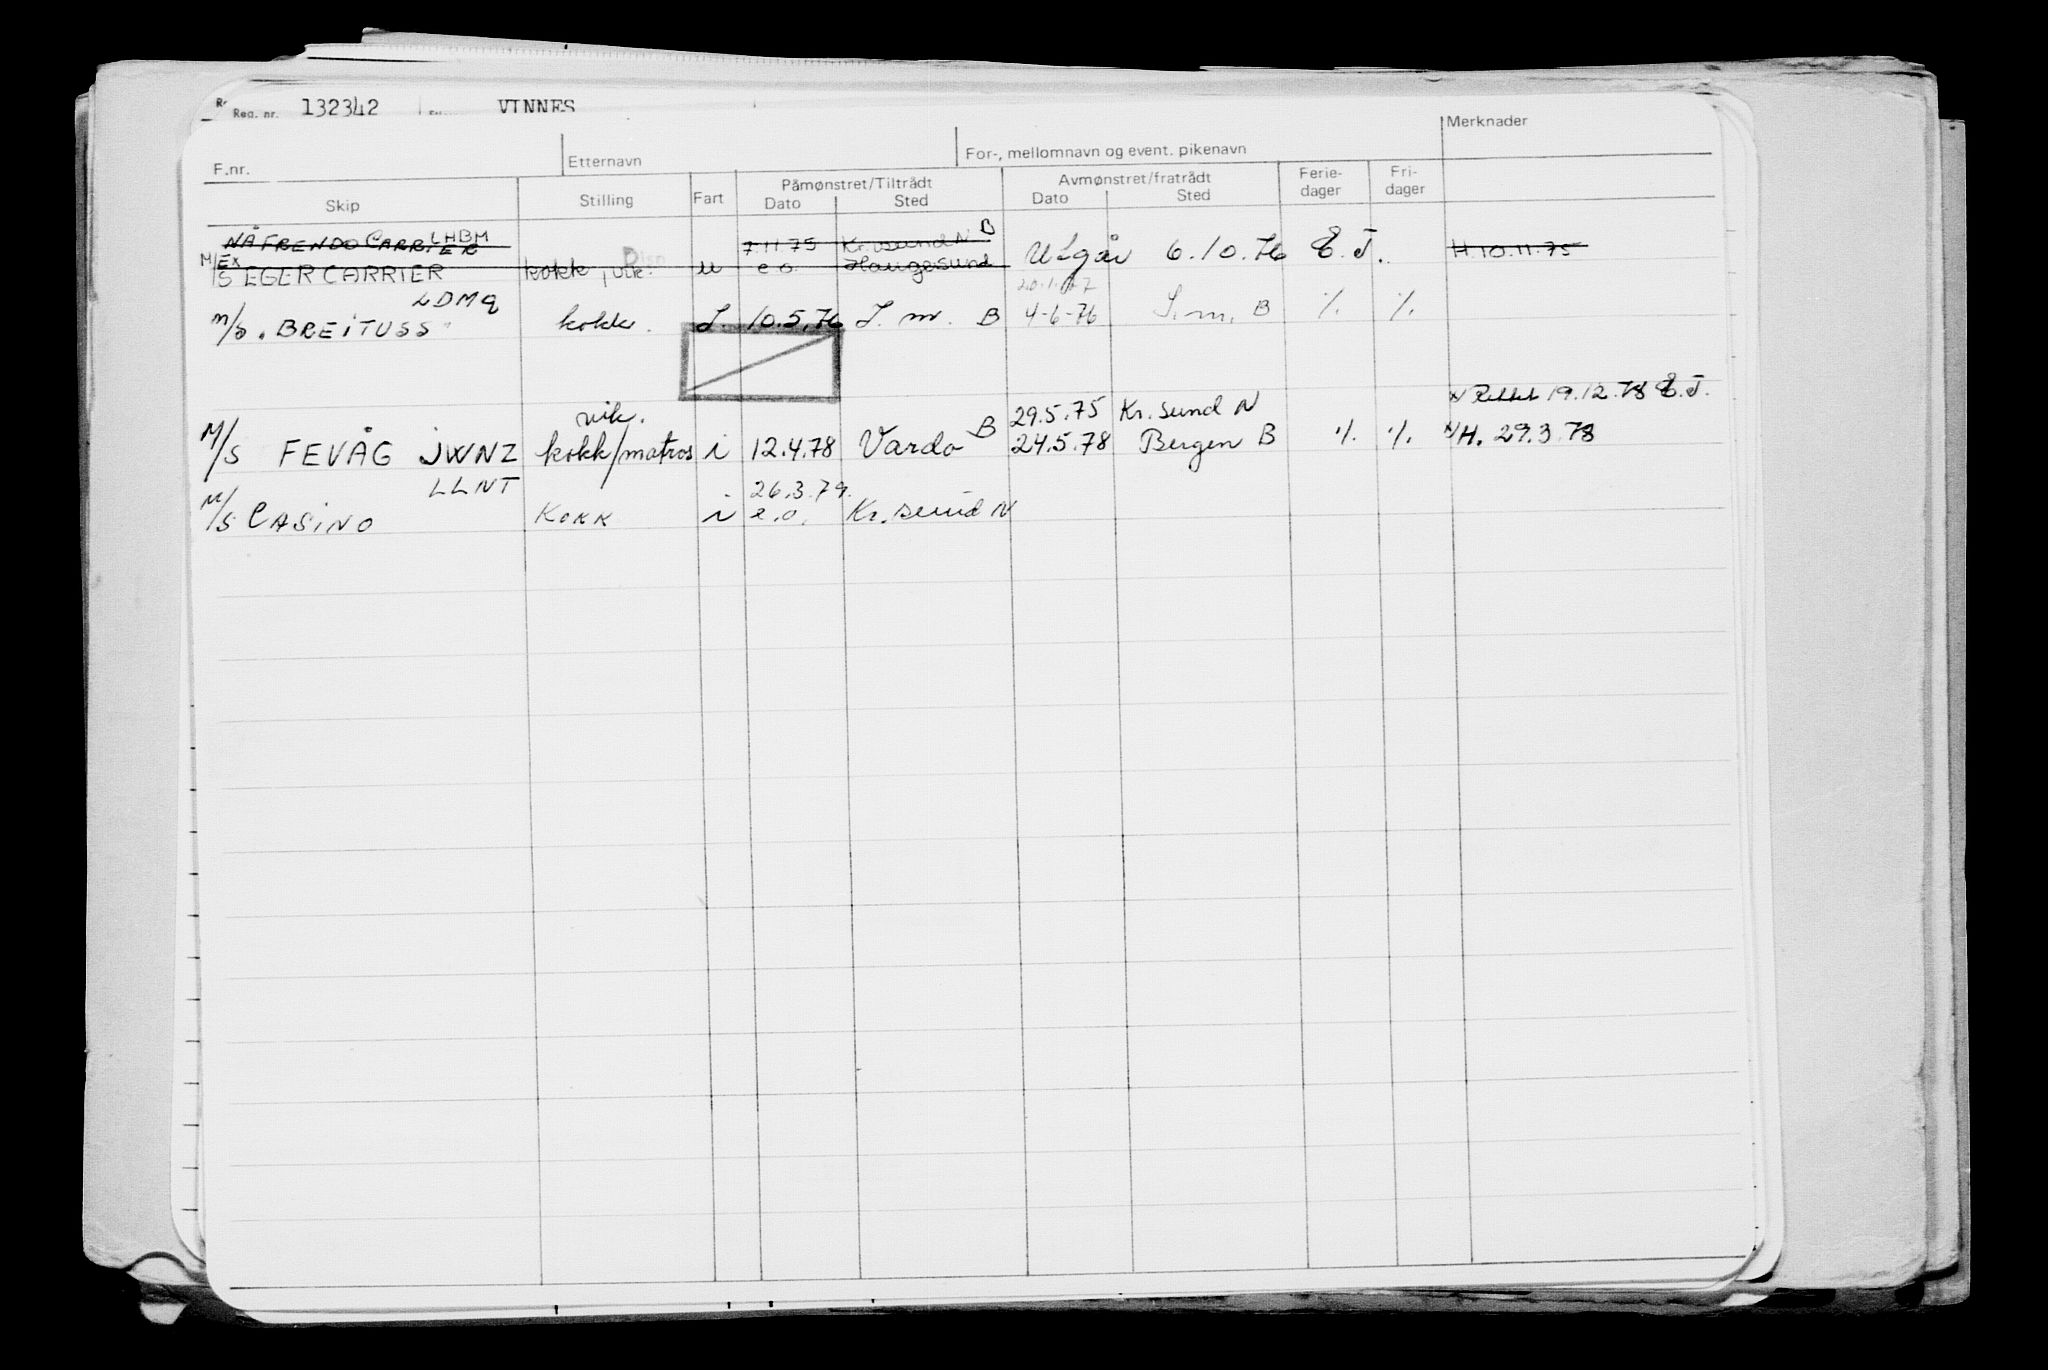 Reg. nr. 132342 VINNES
F.nr. Etternavn For-, mellomnavn og event. pikenavn Merknader
Skip Stilling Fart Påmønstret/Tiltrådt Avmønstret/fratrådt Ferie-dager Fri-dager
Dato Sted Dato Sted
NÅFRENDO CARRIER LHBM 7.11.75 Kr.sund N B
M/S Ex EGER CARRIER kokk, vik. Disp u e.o. Haugesund Utgår 6.10.76 E.J. H.10.11.75
LDMQ
m/s. BREITUSS kokk. I. 10.5.76 I. m. B 4-6-76 I.m. B % %
vik. 29.5.75 Kr. sund N x/ Rettet 19.12.78 E.J.
M/S FEVÅG JWNZ kokk/matros i 12.4.78 Vardø B 24.5.78 Bergen B % % x/H. 29.3.78
LLNT 26.3.79.
M/S CASINO KOKK i e.o. Kr. sund N